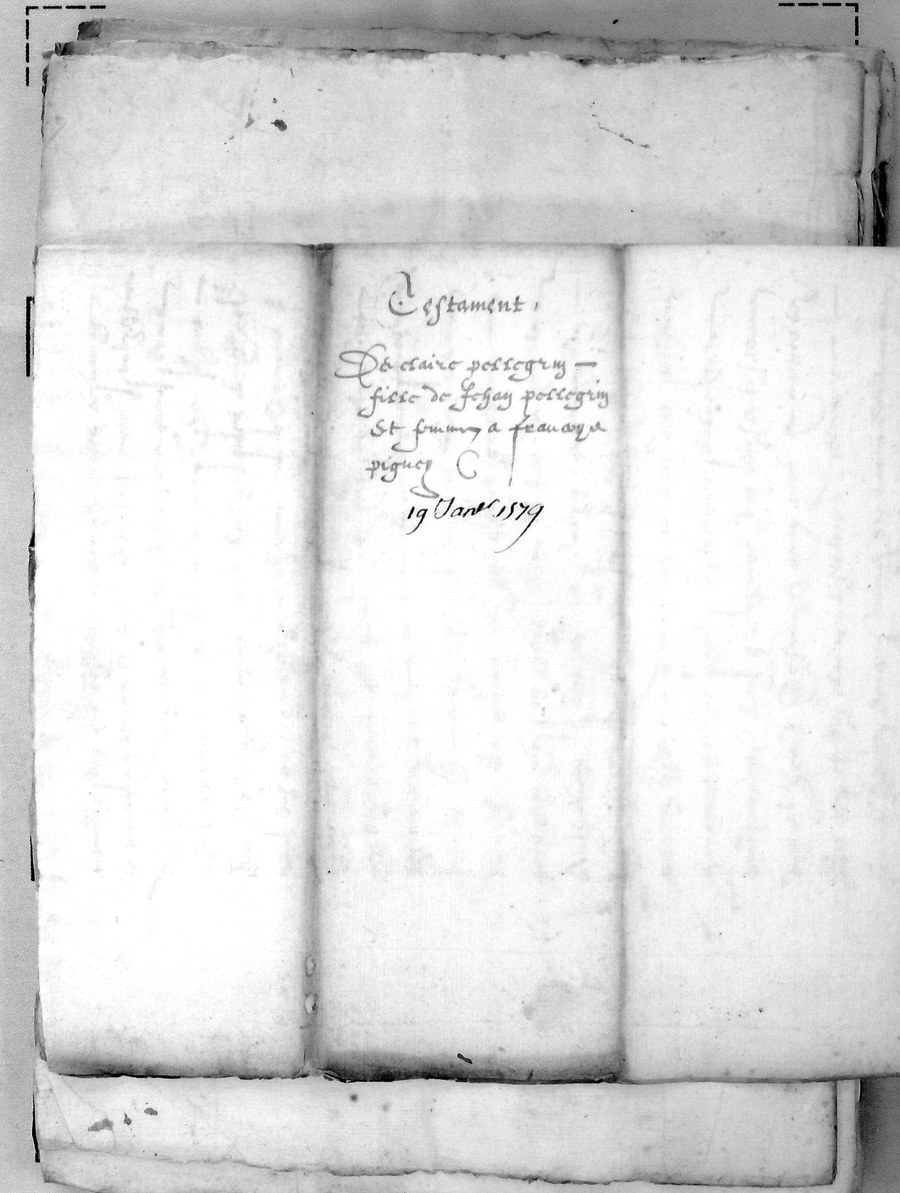 Testament.
De claire pellegrin —
fille de Jehan pellegrin
Et femme a francoys
piguey
19 Janr. 1579